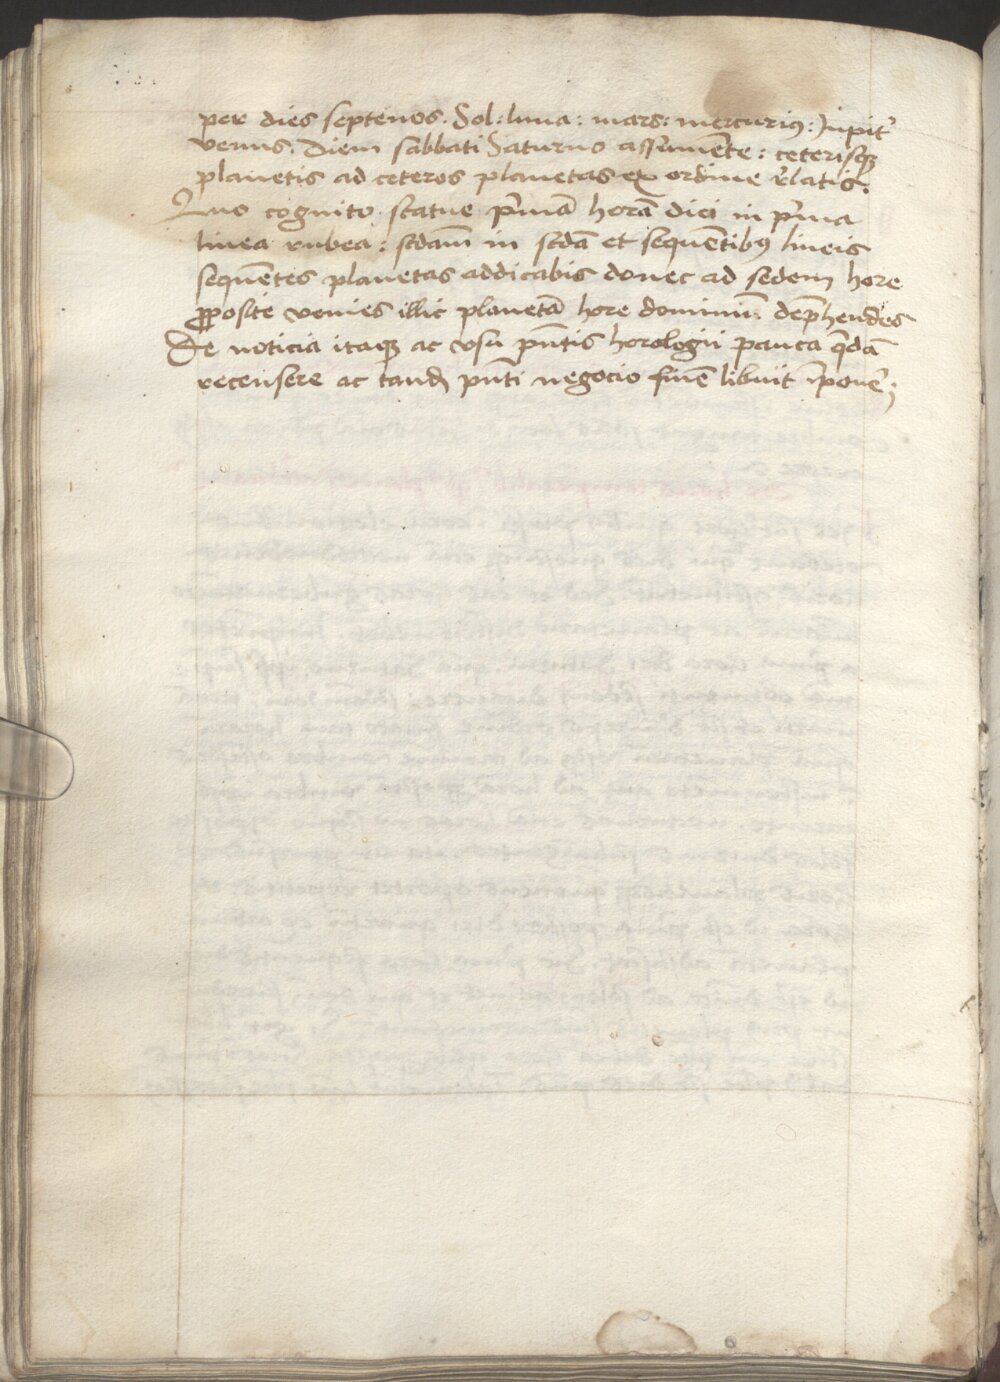 per dies septenos. Sol: luna: mars: mercuriꝰ: Jupit᷑
venus. Diem sabbati Saturno assume͂te: ceterisqꝫ
planetis ad ceteros planetas ex ordine r᷑latis.
Quo cognito statue p᷑ma᷑ hora᷑ diei in p᷑ma
linea rubea: scda᷑m in scda᷑ et seque᷑tibꝰ lineis
seque᷑tes planetas addicabis donec ad sedem hore
ꝓposite venies illic planeta᷑ hore dominiu᷑ dep᷑hendes
De noticia itaqꝫ ac vsu p᷑ntis horologii pauca q᷑da᷑
recensere ac tand᷑ p᷑nti negocio fine᷑ libuit i᷑poner᷑;